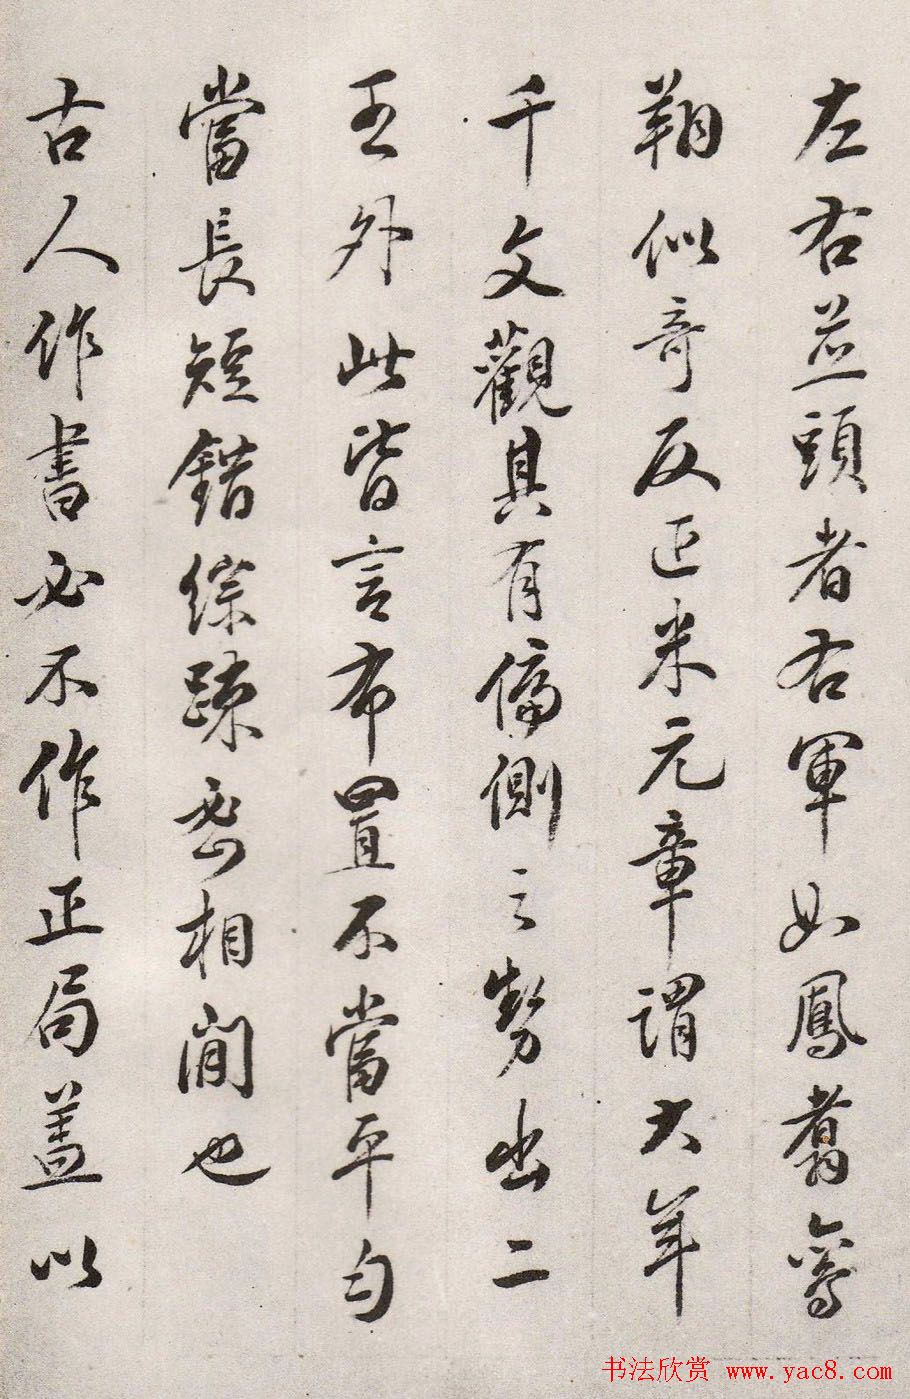 左右並頭者右軍如鳳翥鸞
翔似奇反正米元章謂大年
千文觀其有偏側之勢出二
王外此皆言布置不當平勻
當長短錯綜疎密相間也
古人作書必不作正局蓋以
书法欣赏 www.yac8.com